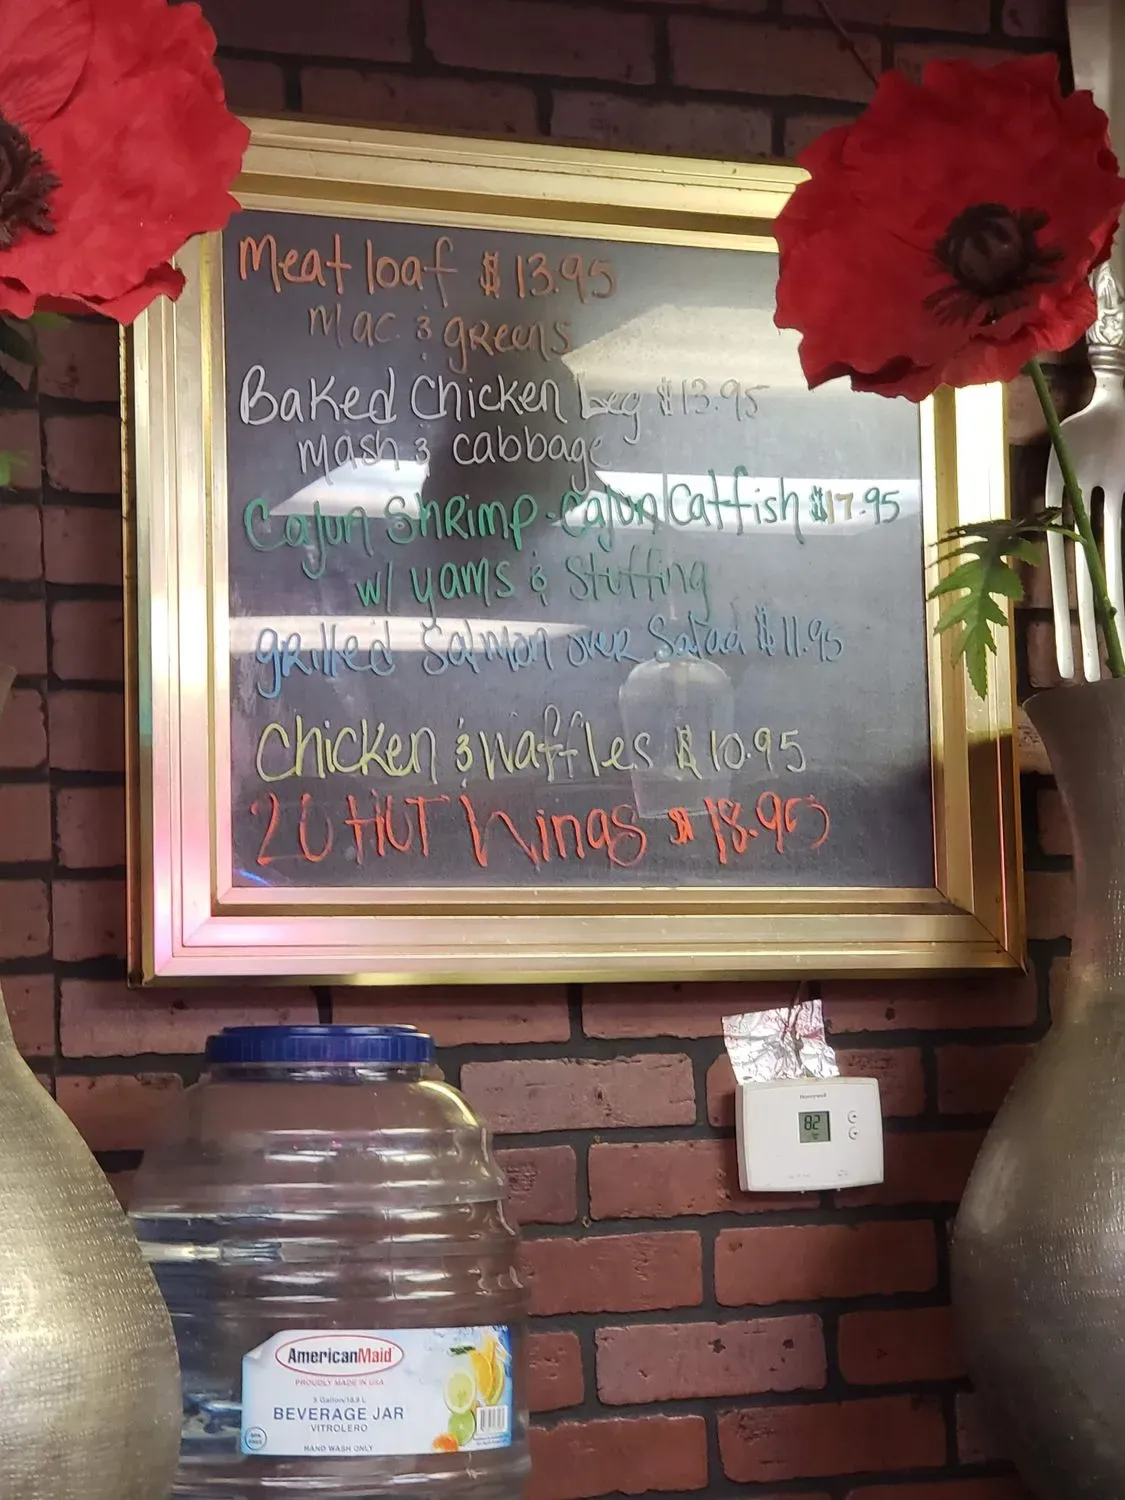 Meatloaf $13.95
Mac & greens
Baked Chicken Leg $13.95
mash & cabbage
Cajun Shrimp - Cajun Catfish $17.95
w/ yams & Stuffing
grilled Salmon over Salad $11.95
Chicken & Waffles $10.95
20 HOT Wings $18.95
Honeywell
82
AmericanMaid
PROUDLY MADE IN USA
5 Gallon/18.9 L
BEVERAGE JAR
VITROLERO
HAND WASH ONLY